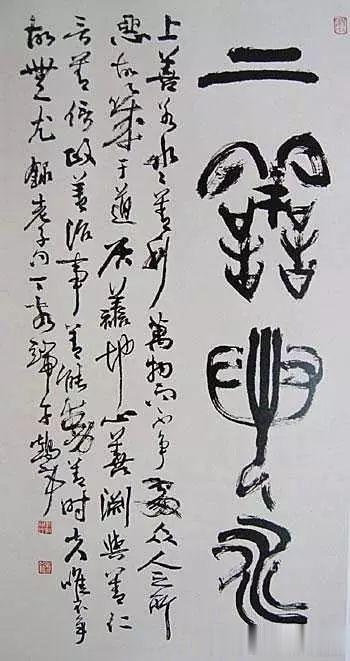 上善若水
上善若水々善利萬物而不争處众人之所
恶故幾于道居善地心善渊與善仁
言善信政善治事善能動善時夫唯不争
故無尤錄老子句丁亥端午